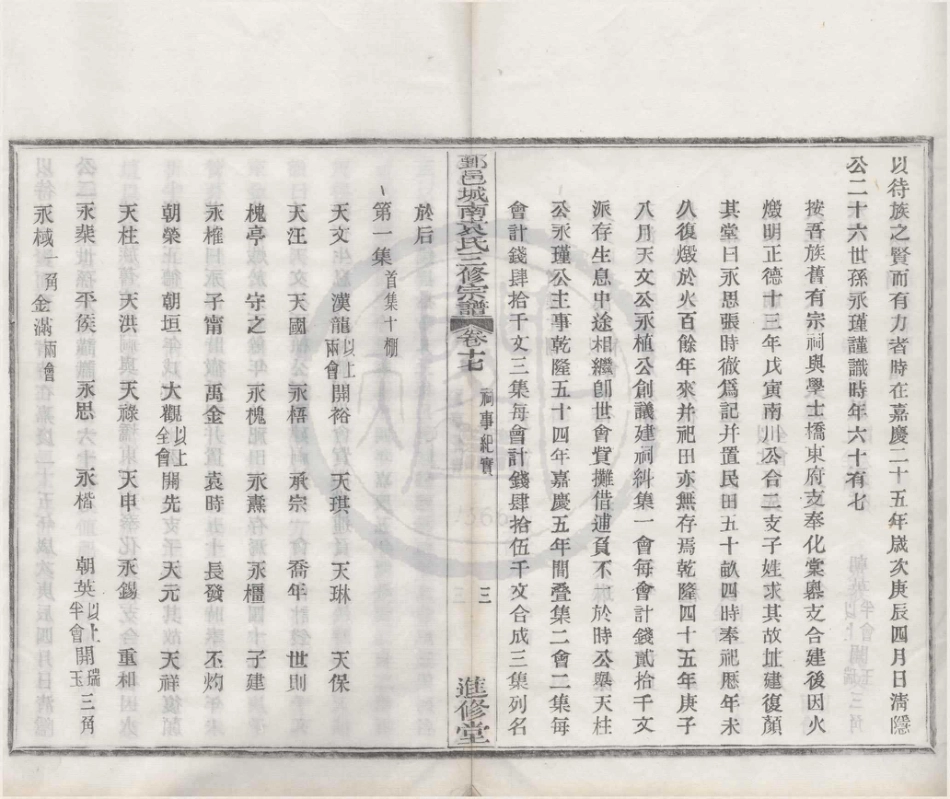 以待族之賢而有力者時在嘉慶二十五年歲次庚辰四月日淸隱
公二十六世孫永瑾謹識時年六十有七
按吾族舊有宗祠與學士橋東府支奉化棠嶴支合建後因火
燬明正德十三年戊寅南川公合二支子姓求其故址建復顏
其堂曰永思張時徹爲記并置民田五十畝四時奉祀歷年未
久復燬於火百餘年來并祀田亦無存焉乾隆四十五年庚子
八月天文公永植公創議建祠糾集一會每會計錢貳拾千文
派存生息中途相繼卽世會貲攤借逋負不 於時公舉天柱
公永瑾公主事乾隆五十四年嘉慶五年間叠集二會二集每
會計錢肆拾千文三集每會計錢肆拾伍千文合成三集列名
鄞邑城南袁氏三修宗譜 卷十七 祠事紀實 三 進修堂
於后
第一集 首集十棚
天文 漢龍 以上兩會 開裕 天琪 天琳 天保
天汪 天國 永梧 承宗 喬年 世則
槐亭 守之 永槐 永燾 永櫃 子建
永榷 子甯 禹金 袁時 長發 丕灼
朝榮 朝垣 大觀 以上全會 開先 天元 天祥
天柱 天洪 天祿 天申 永錫 重和
永棐 平侯 永思 永楷 朝英 以上半會 開瑞玉 三角
永棫 一角 金滿 兩會